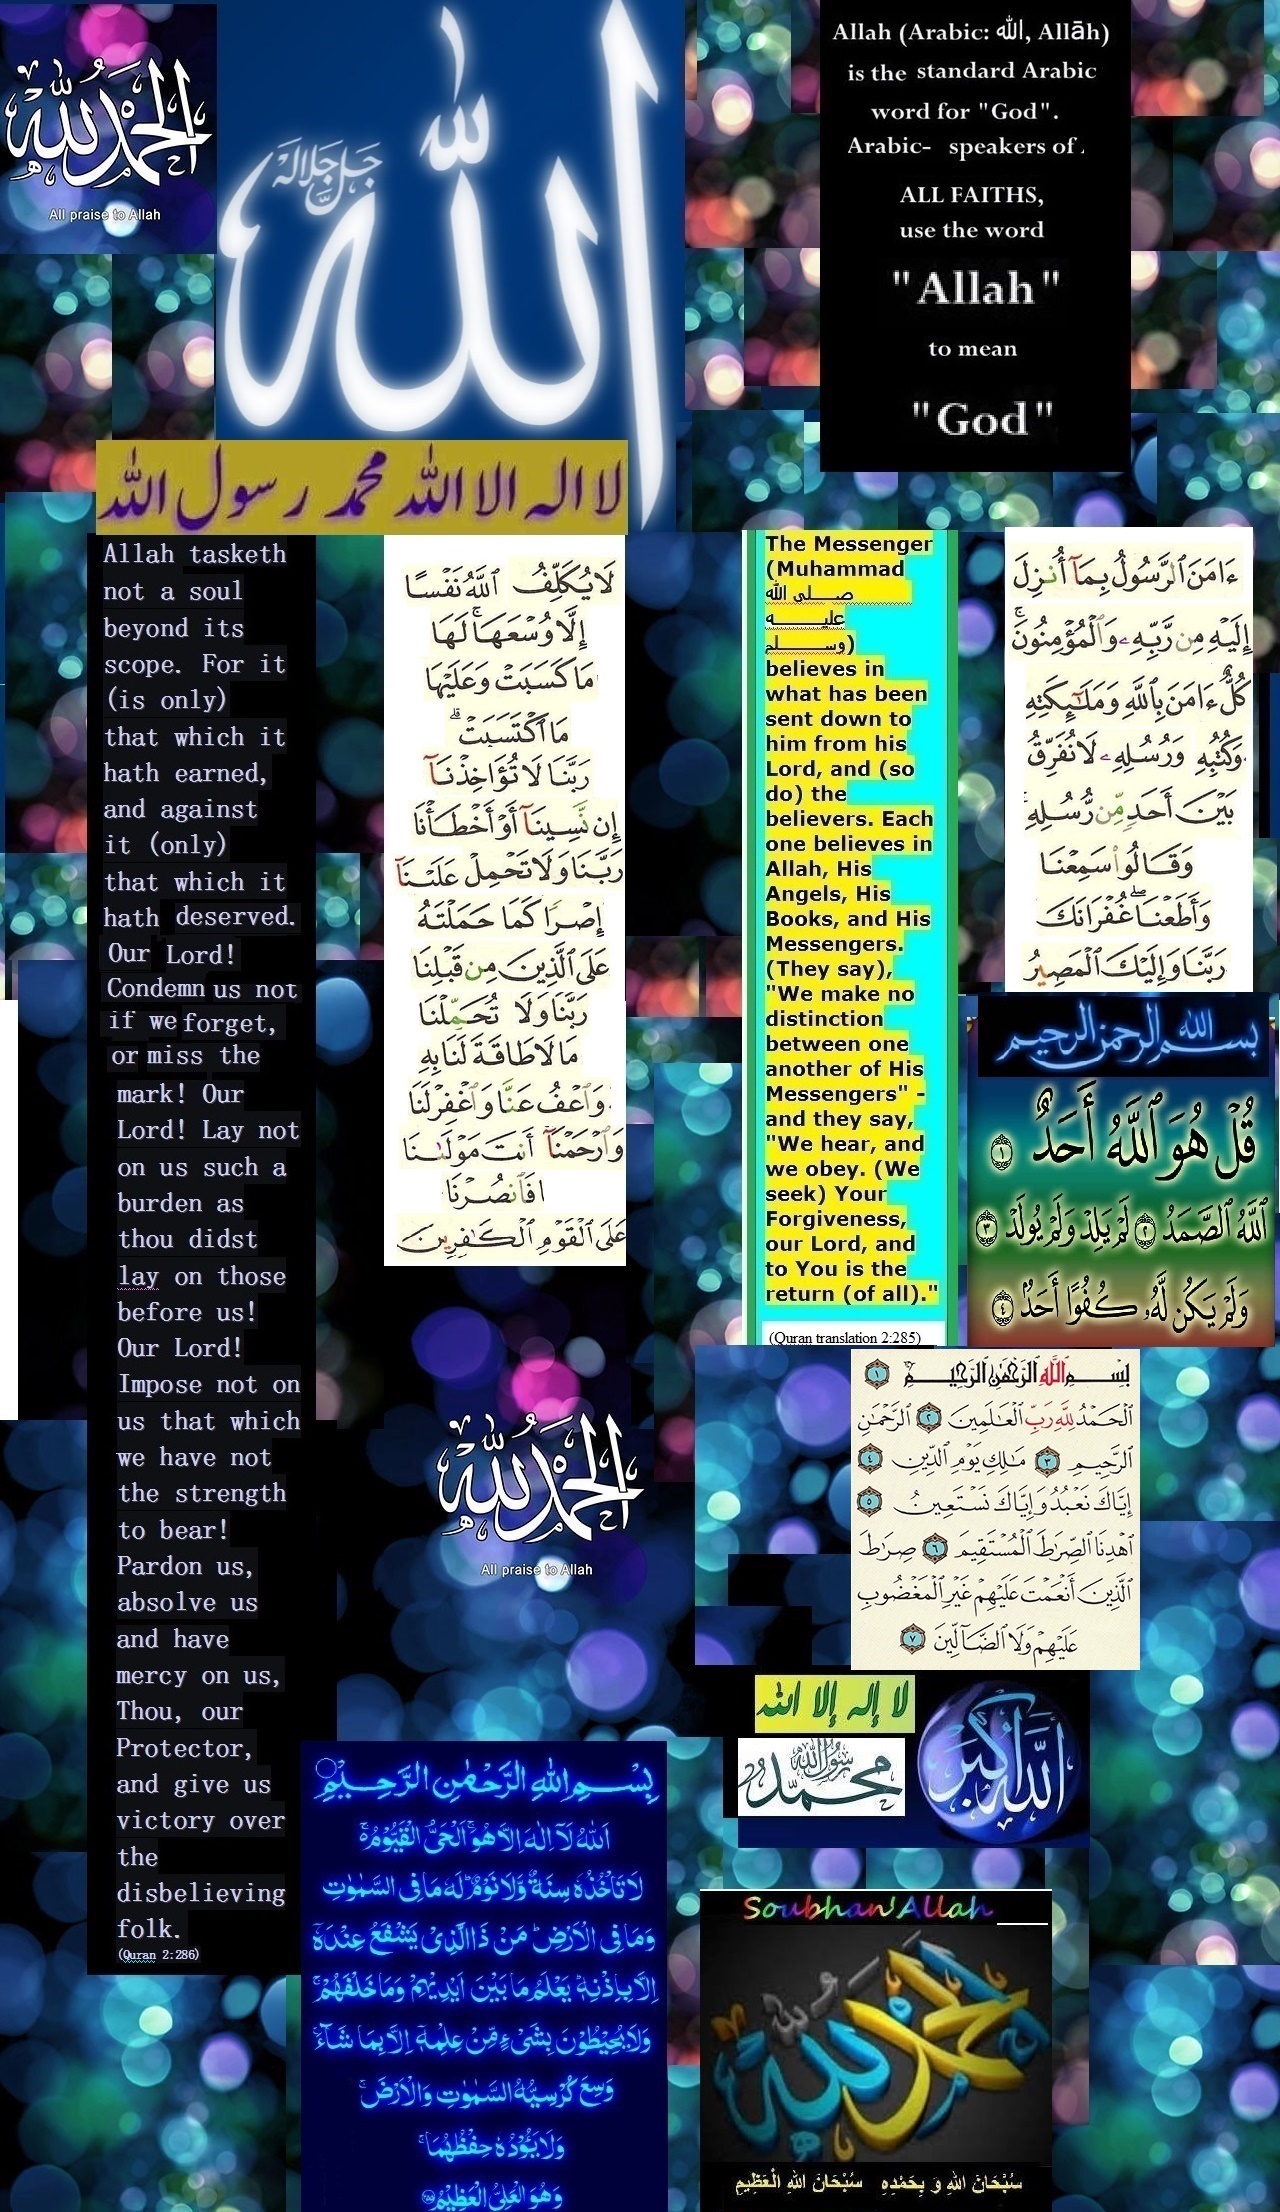 الحمد لله
All praise to Allah
الله
جل جلاله
Allah (Arabic: الله, Allāh)
is the standard Arabic
word for "God".
Arabic- speakers of
ALL FAITHS,
use the word
"Allah"
to mean
"God"
لا اله الا الله محمد رسول الله
Allah tasketh
not a soul
beyond its
scope. For it
(is only)
that which it
hath earned,
and against
it (only)
that which it
hath deserved.
Our Lord!
Condemn us not
if we forget,
or miss the
mark! Our
Lord! Lay not
on us such a
burden as
thou didst
lay on those
before us!
Our Lord!
Impose not on
us that which
we have not
the strength
to bear!
Pardon us,
absolve us
and have
mercy on us,
Thou, our
Protector,
and give us
victory over
the
disbelieving
folk.
(Quran 2:286)
لَا يُكَلِّفُ ٱللَّهُ نَفْسًا
إِلَّا وُسْعَهَا ۚ لَهَا
مَا كَسَبَتْ وَعَلَيْهَا
مَا ٱكْتَسَبَتْ ۗ
رَبَّنَا لَا تُؤَاخِذْنَآ
إِن نَّسِينَآ أَوْ أَخْطَأْنَا
رَبَّنَا وَلَا تَحْمِلْ عَلَيْنَآ
إِصْرًا كَمَا حَمَلْتَهُ
عَلَى ٱلَّذِينَ مِن قَبْلِنَا
رَبَّنَا وَلَا تُحَمِّلْنَا
مَا لَا طَاقَةَ لَنَا بِهِ
وَٱعْفُ عَنَّا وَٱغْفِرْ لَنَا
وَٱرْحَمْنَآ أَنتَ مَوْلَىٰنَا
فَٱنصُرْنَا
عَلَى ٱلْقَوْمِ ٱلْكَٰفِرِينَ
The Messenger
(Muhammad
صلى الله
عليه
وسلم)
believes in
what has been
sent down to
him from his
Lord, and (so
do) the
believers. Each
one believes in
Allah, His
Angels, His
Books, and His
Messengers.
(They say),
"We make no
distinction
between one
another of His
Messengers" -
and they say,
"We hear, and
we obey. (We
seek) Your
Forgiveness,
our Lord, and
to You is the
return (of all)."
(Quran translation 2:285)
ءَامَنَ ٱلرَّسُولُ بِمَآ أُنزِلَ
إِلَيْهِ مِن رَّبِّهِۦ وَٱلْمُؤْمِنُونَ ۚ
كُلٌّ ءَامَنَ بِٱللَّهِ وَمَلَٰٓئِكَتِهِ
وَكُتُبِهِ وَرُسُلِهِۦ لَا نُفَرِّقُ
بَيْنَ أَحَدٍ مِّن رُّسُلِهِ
وَقَالُوا سَمِعْنَا
وَأَطَعْنَا ۖ غُفْرَانَكَ
رَبَّنَا وَإِلَيْكَ ٱلْمَصِيرُ
بسم الله الرحمن الرحيم
قُلْ هُوَ ٱللَّهُ أَحَدٌ ١
ٱللَّهُ ٱلصَّمَدُ ٢ لَمْ يَلِدْ وَلَمْ يُولَدْ ٣
وَلَمْ يَكُن لَّهُۥ كُفُوًا أَحَدٌ ٤
بِسْمِ ٱللَّهِ ٱلرَّحْمَٰنِ ٱلرَّحِيمِ ١
ٱلْحَمْدُ لِلَّهِ رَبِّ ٱلْعَٰلَمِينَ ٢ ٱلرَّحْمَٰنِ
ٱلرَّحِيمِ ٣ مَٰلِكِ يَوْمِ ٱلدِّينِ ٤
إِيَّاكَ نَعْبُدُ وَإِيَّاكَ نَسْتَعِينُ ٥
ٱهْدِنَا ٱلصِّرَٰطَ ٱلْمُسْتَقِيمَ ٦ صِرَٰطَ
ٱلَّذِينَ أَنْعَمْتَ عَلَيْهِمْ غَيْرِ ٱلْمَغْضُوبِ
عَلَيْهِمْ وَلَا ٱلضَّآلِّينَ ٧
الحمد لله
All praise to Allah
لا إله إلا الله
محمد رسول الله
الله أكبر
بِسْمِ اللهِ الرَّحْمٰنِ الرَّحِيْمِ
اَللهُ لَاۤ اِلٰهَ اِلَّا هُوَ ۚ اَلْحَىُّ الْقَيُّوْمُ ۚ
لَا تَاْخُذُهٗ سِنَةٌ وَّلَا نَوْمٌ ؕ لَهٗ مَا فِى السَّمٰوٰتِ
وَمَا فِى الْاَرْضِ ؕ مَنْ ذَا الَّذِىْ يَشْفَعُ عِنْدَهٗۤ
اِلَّا بِاِذْنِهٖ ؕ يَعْلَمُ مَا بَيْنَ اَيْدِيْهِمْ وَمَا خَلْفَهُمْ ۚ
وَلَا يُحِيْطُوْنَ بِشَىْءٍ مِّنْ عِلْمِهٖۤ اِلَّا بِمَا شَآءَ ۚ
وَسِعَ كُرْسِيُّهُ السَّمٰوٰتِ وَالْاَرْضَ ۚ
وَلَا يَئُوْدُهٗ حِفْظُهُمَا ۚ
وَهُوَ الْعَلِىُّ الْعَظِيْمُ ٢٥٥
Soubhan'Allah
الحمد لله
سُبْحَانَ اللهِ وَ بِحَمْدِهِ سُبْحَانَ اللهِ الْعَظِيمِ